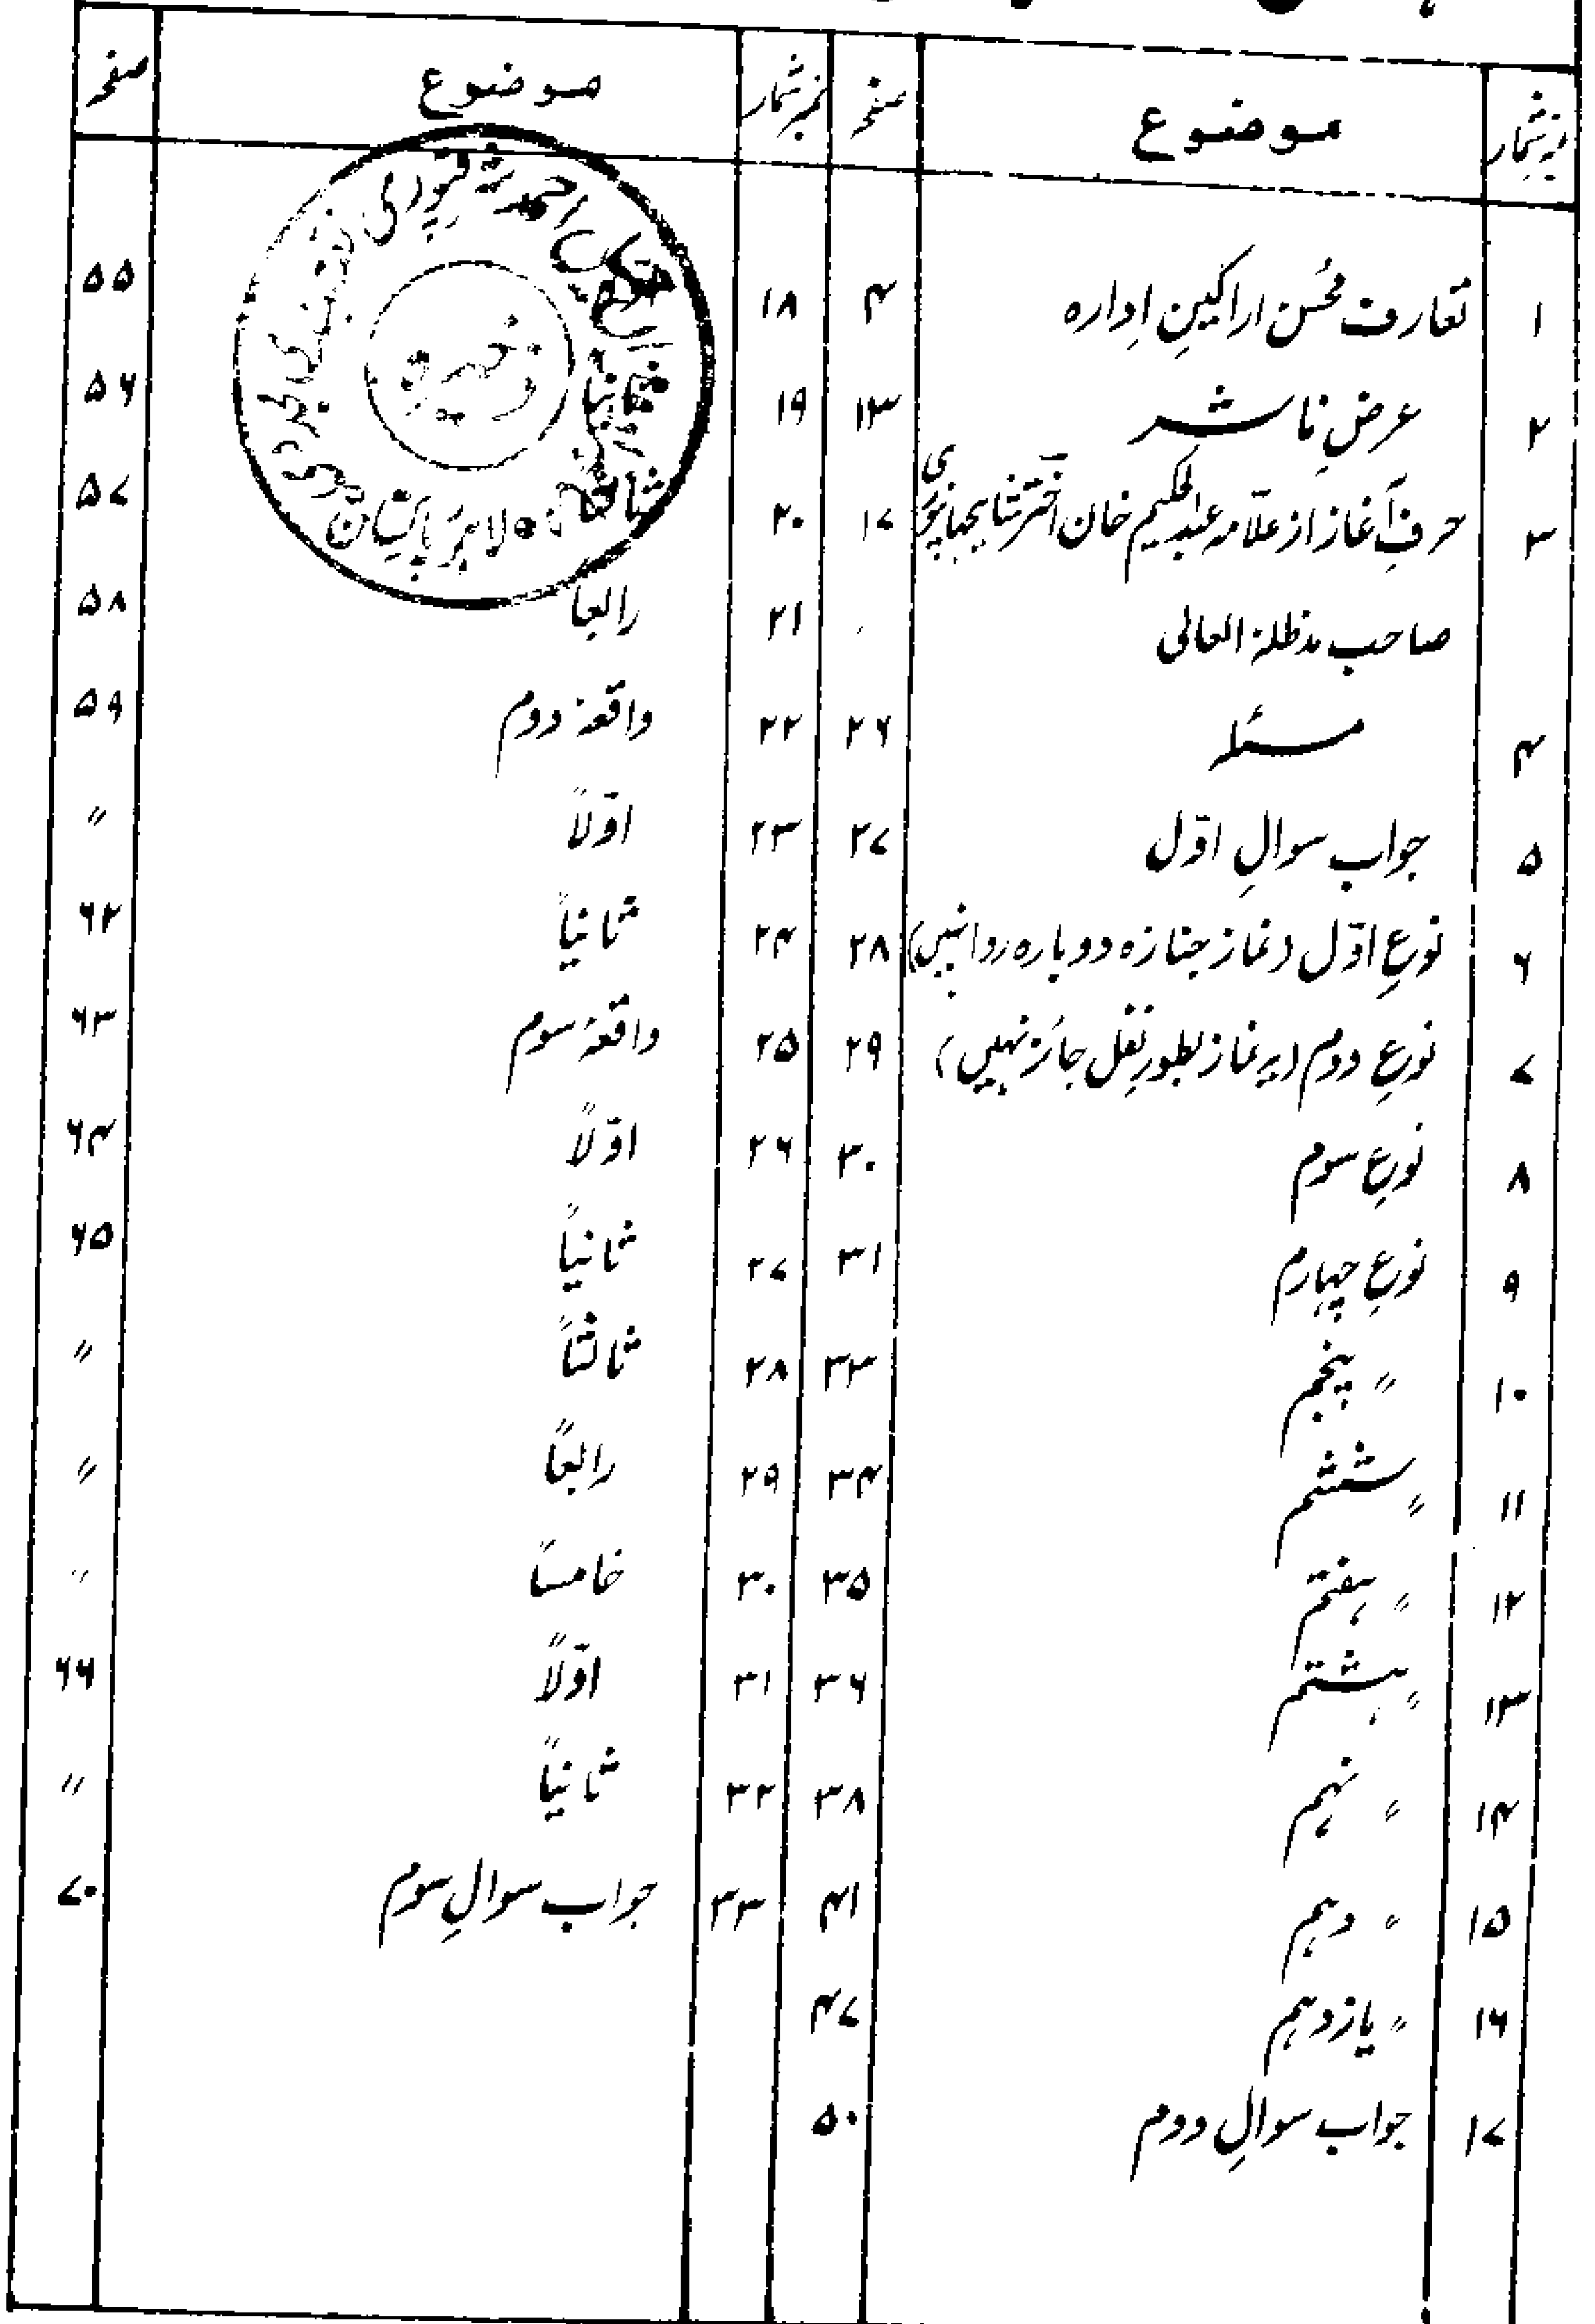 نمبر شمار موضوع صفحہ
۱ تعارف محُسن اراکینِ اِدارہ ۴
۲ عرضِ ناشر ۱۳
۳ حرفِ آغاز از علاّمہ عبدالحکیم خان اختر شاہجہانپوری ۱۷
صاحب مدظلہٗ العالی
۴ مسئلہ ۲۶
۵ جواب سوالِ اوّل ۲۷
۶ نوعِ اوّل (نماز جنازہ دوبارہ روا نہیں) ۲۸
۷ نوعِ دوم (یہ نماز بطورِ نفل جائز نہیں) ۲۹
۸ نوعِ سوم ۳۰
۹ نوعِ چہارم ۳۱
۱۰ ״ پنجم ۳۳
۱۱ ״ ششم ۳۴
۱۲ ״ ہفتم ۳۵
۱۳ ״ ہشتم ۳۶
۱۴ ״ نہم ۳۸
۱۵ ״ دہم ۴۱
۱۶ ״ یازدہم ۴۷
۱۷ جواب سوالِ دوم ۵۰
نمبر شمار موضوع صفحہ
۱۸ ۵۵
۱۹ ثانیاً ۵۶
۲۰ ثالثاً ۵۷
۲۱ رابعاً ۵۸
۲۲ واقعۂ دوم ۵۹
۲۳ اوّلاً ״
۲۴ ثانیاً ۶۲
۲۵ واقعۂ سوم ۶۳
۲۶ اوّلاً ۶۴
۲۷ ثانیاً ۶۵
۲۸ ثالثاً ״
۲۹ رابعاً ״
۳۰ خامساً ״
۳۱ اوّلاً ۶۶
۳۲ ثانیاً ״
۳۳ جواب سوالِ سوم ۷۰
ذخیرہ
احمد شرقپوری نقشبندی مجددی
لاہور پاکستان